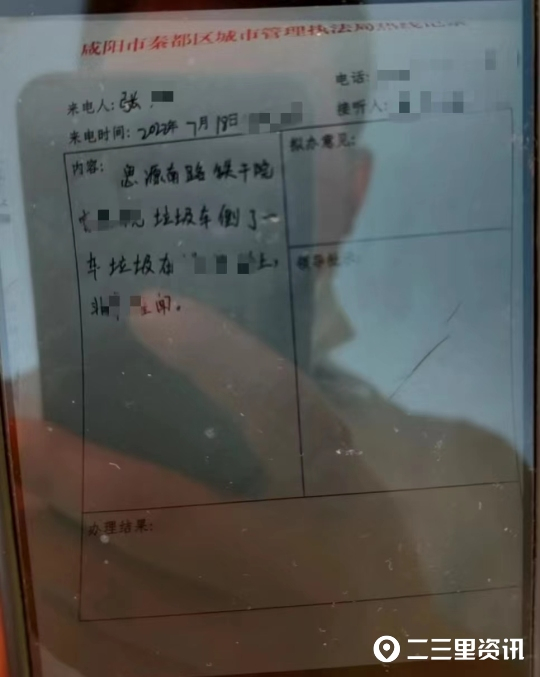 咸阳市秦都区城市管理执法局热线记录
电话:
来电人: 张
接听人:
来电时间: 2022年7月18日
内容: 思源南路铁干院
垃圾车倒了一
车垃圾在
拟办意见:
领导批示:
办理结果:
二三里资讯